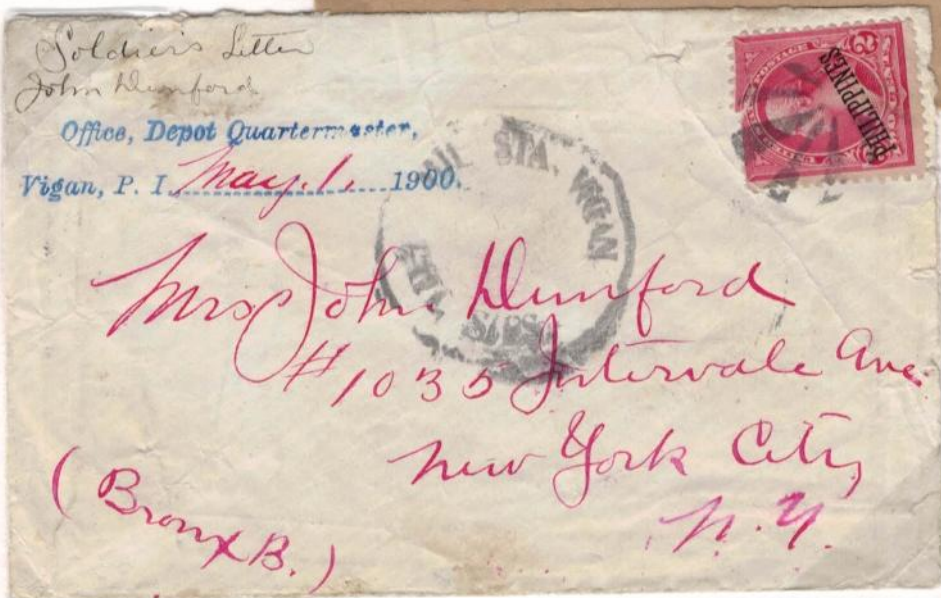 Soldier's Letter
John Dunford
Office, Depot Quartermaster,
Vigan, P. I. May. 1. 1900.
POSTAGE
2
PHILIPPINES
2
STA. VIGAN
Mrs John Dunford
# 1035 Intervale Ave.
New York City
N.Y.
(Bronx B.)